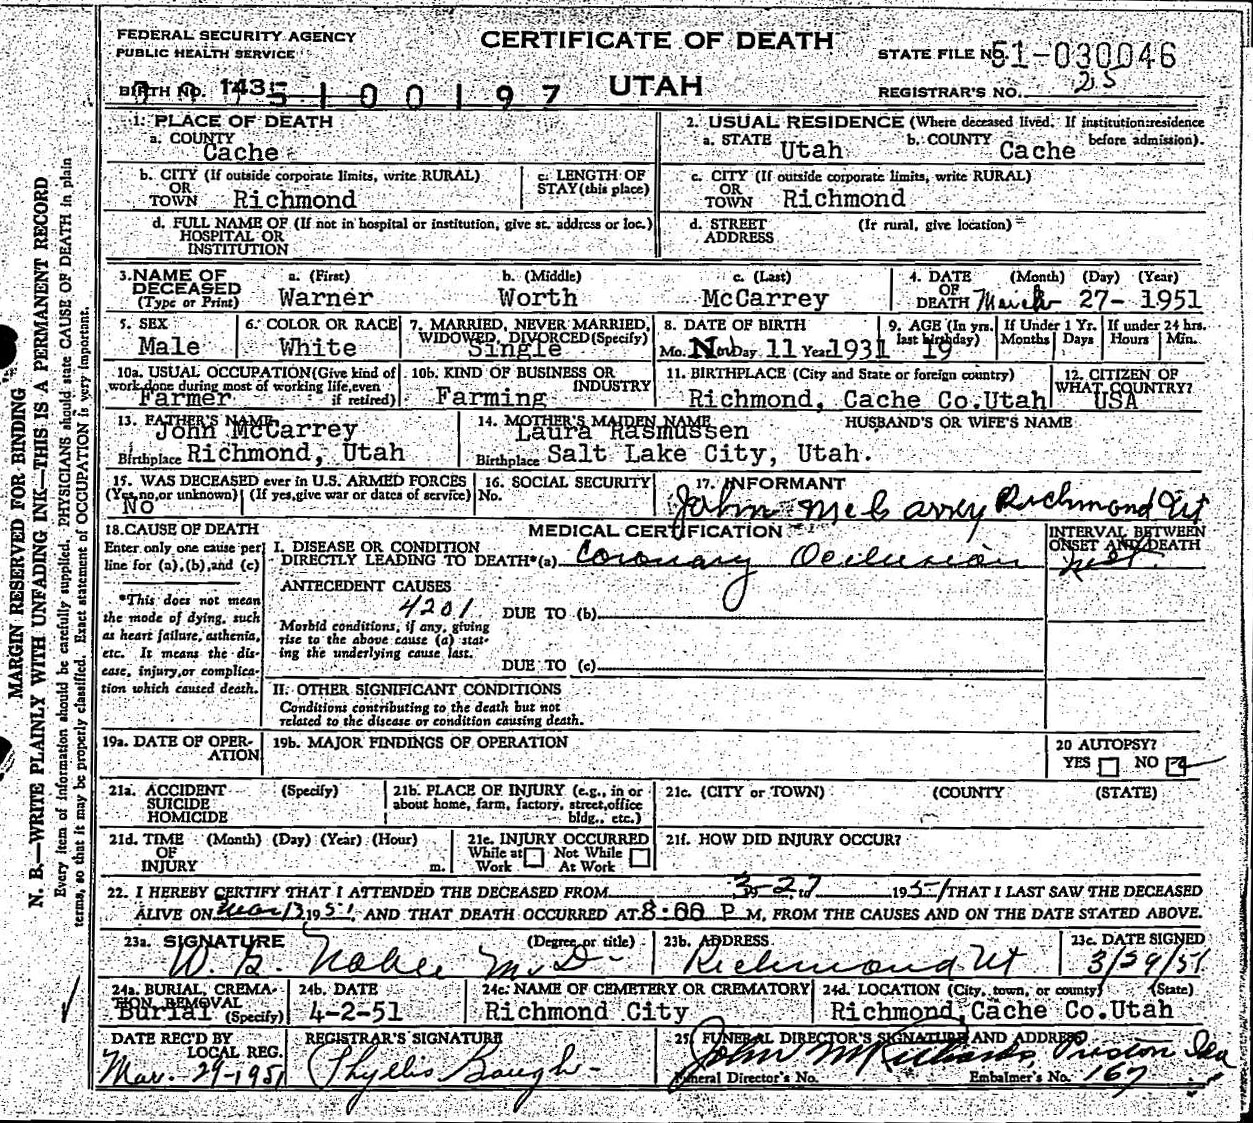 FEDERAL SECURITY AGENCY
PUBLIC HEALTH SERVICE
CERTIFICATE OF DEATH
UTAH
STATE FILE NO. 51-030046
REGISTRAR'S NO. 25
BIRTH NO. 143
5100197
1. PLACE OF DEATH
a. COUNTY
Cache
2. USUAL RESIDENCE (Where deceased lived. If institution:residence before admission).
a. STATE Utah b. COUNTY Cache
b. CITY (If outside corporate limits, write RURAL)
OR
TOWN Richmond
c. LENGTH OF
STAY (this place)
c. CITY (If outside corporate limits, write RURAL)
OR
TOWN Richmond
d. FULL NAME OF (If not in hospital or institution, give st. address or loc.)
HOSPITAL OR
INSTITUTION
d. STREET (If rural, give location)
ADDRESS
3. NAME OF DECEASED
(Type or Print)
a. (First) b. (Middle) c. (Last)
Warner Worth McCarrey
4. DATE (Month) (Day) (Year)
OF
DEATH March 27- 1951
5. SEX
Male
6. COLOR OR RACE
White
7. MARRIED, NEVER MARRIED,
WIDOWED, DIVORCED (Specify)
Single
8. DATE OF BIRTH
Mo. Nov Day 11 Year 1931
9. AGE (In yrs.
last birthday)
19
If Under 1 Yr.
Months Days
If under 24 hrs.
Hours Min.
10a. USUAL OCCUPATION (Give kind of
work done during most of working life, even
if retired)
Farmer
10b. KIND OF BUSINESS OR
INDUSTRY
Farming
11. BIRTHPLACE (City and State or foreign country)
Richmond, Cache Co.Utah
12. CITIZEN OF
WHAT COUNTRY?
USA
13. FATHER'S NAME
John McCarrey
Birthplace Richmond, Utah
14. MOTHER'S MAIDEN NAME
Laura Rasmussen
Birthplace Salt Lake City, Utah.
HUSBAND'S OR WIFE'S NAME
15. WAS DECEASED ever in U.S. ARMED FORCES
(Yes,no,or unknown) (If yes,give war or dates of service)
No
16. SOCIAL SECURITY
No.
17. INFORMANT
John McCarrey Richmond Ut
18. CAUSE OF DEATH
Enter only one cause per
line for (a), (b), and (c)
*This does not mean
the mode of dying, such
as heart failure, asthenia,
etc. It means the dis-
ease, injury, or complica-
tion which caused death.
MEDICAL CERTIFICATION
I. DISEASE OR CONDITION
DIRECTLY LEADING TO DEATH*(a) Coronary Occlusion
INTERVAL BETWEEN
ONSET AND DEATH
ANTECEDENT CAUSES
4201
DUE TO (b)
Morbid conditions, if any, giving
rise to the above cause (a) stat-
ing the underlying cause last.
DUE TO (c)
II. OTHER SIGNIFICANT CONDITIONS
Conditions contributing to the death but not
related to the disease or condition causing death.
19a. DATE OF OPER-
ATION
19b. MAJOR FINDINGS OF OPERATION
20 AUTOPSY?
YES NO
21a. ACCIDENT (Specify)
SUICIDE
HOMICIDE
21b. PLACE OF INJURY (e.g., in or
about home, farm, factory, street, office
bldg., etc.)
21c. (CITY or TOWN) (COUNTY (STATE)
21d. TIME (Month) (Day) (Year) (Hour)
OF
INJURY m.
21e. INJURY OCCURRED
While at Not While
Work At Work
21f. HOW DID INJURY OCCUR?
22. I HEREBY CERTIFY THAT I ATTENDED THE DECEASED FROM 3-27, to 1951 THAT I LAST SAW THE DECEASED
ALIVE ON 1951, AND THAT DEATH OCCURRED AT 8:00 P M, FROM THE CAUSES AND ON THE DATE STATED ABOVE.
23a. SIGNATURE (Degree or title)
W. G. Noble M.D.
23b. ADDRESS
Richmond Ut
23c. DATE SIGNED
3/29/51
24a. BURIAL, CREMA-
TION, REMOVAL
Burial (Specify)
24b. DATE
4-2-51
24c. NAME OF CEMETERY OR CREMATORY
Richmond City
24d. LOCATION (City, town, or county) (State)
Richmond, Cache Co.Utah
DATE REC'D BY
LOCAL REG.
Mar. 29-1951
REGISTRAR'S SIGNATURE
Phyllis Baugh
25. FUNERAL DIRECTOR'S SIGNATURE AND ADDRESS
John M Richards, Preston Ida
Funeral Director's No. Embalmer's No. 167
MARGIN RESERVED FOR BINDING
N. B.—WRITE PLAINLY WITH UNFADING INK—THIS IS A PERMANENT RECORD
Every item of information should be carefully supplied. PHYSICIANS should state CAUSE OF DEATH in plain
terms, so that it may be properly classified. Exact statement of OCCUPATION is very important.